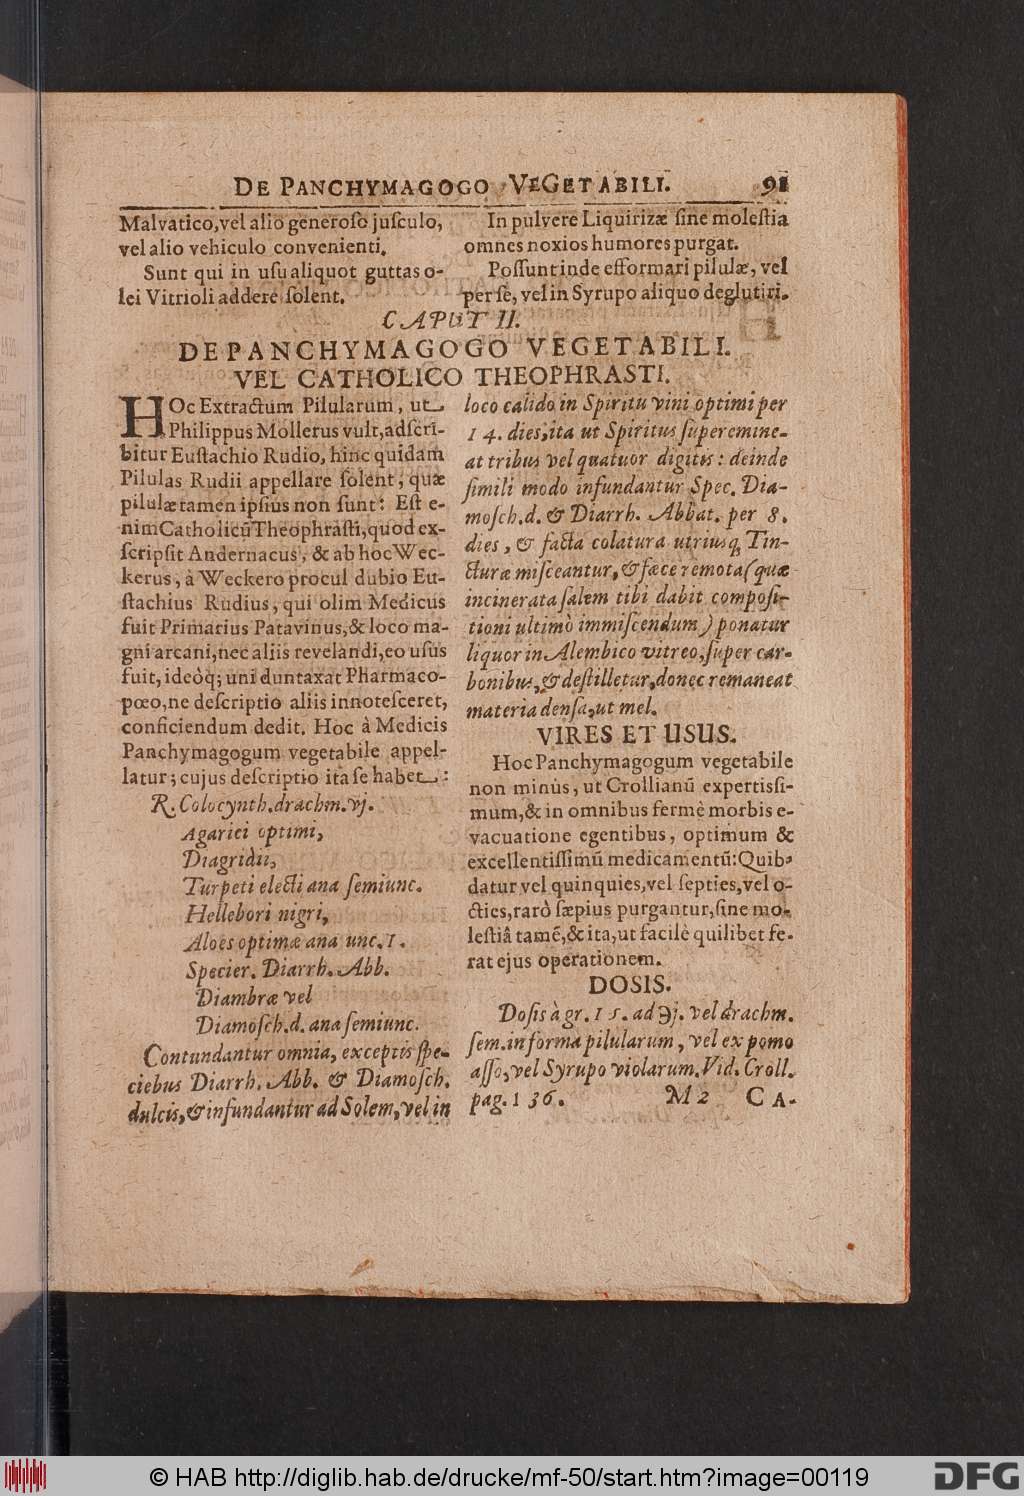 DE PANCHYMAGOGO VEGETABILI. 91
Malvatico, vel alio generoso jusculo,
vel alio vehiculo convenienti.
Sunt qui in usu aliquot guttas o-
lei Vitrioli addere solent.
In pulvere Liquirizæ sine molestia
omnes noxios humores purgat.
Possunt inde efformari pilulæ, vel
per se, vel in Syrupo aliquo deglutiri.
CAPUT II.
DE PANCHYMAGOGO VEGETABILI.
VEL CATHOLICO THEOPHRASTI.
HOc Extractum Pilularum, ut
Philippus Mollerus vult, adscri-
bitur Eustachio Rudio, hinc quidam
Pilulas Rudii appellare solent; quæ
pilulæ tamen ipsius non sunt: Est e-
nim Catholicũ Theophrasti, quod ex-
scripsit Andernacus, & ab hoc Wec-
kerus, à Weckero procul dubio Eu-
stachius Rudius, qui olim Medicus
fuit Primarius Patavinus, & loco ma-
gni arcani, nec aliis revelandi, eo usus
fuit, ideóq; uni duntaxat Pharmaco-
pœo, ne descriptio aliis innotesceret,
conficiendum dedit. Hoc à Medicis
Panchymagogum vegetabile appel-
latur; cujus descriptio ita se habet:
R. Colocynth. drachm. vj.
Agarici optimi,
Diagridii,
Turpeti electi ana semiunc.
Hellebori nigri,
Aloes optimæ ana unc. 1.
Specier. Diarrh. Abb.
Diambræ vel
Diamosch. d. ana semiunc.
Contundantur omnia, exceptis spe-
ciebus Diarrh. Abb. & Diamosch.
dulcis, & infundantur ad Solem, vel in
loco calido in Spiritu vini optimi per
14. dies, ita ut Spiritus superemine-
at tribus vel quatuor digitis: deinde
simili modo infundantur Spec. Dia-
mosch. d. & Diarrh. Abbat. per 8.
dies, & facta colatura utriusq; Tin-
cturæ misceantur, & fæce remota (quæ
incinerata salem tibi dabit composi-
tioni ultimò immiscendum) ponatur
liquor in Alembico vitreo, super car-
bonibus, & destilletur, donec remaneat
materia densa, ut mel.
VIRES ET USUS.
Hoc Panchymagogum vegetabile
non minùs, ut Crollianũ expertissi-
mum, & in omnibus fermè morbis e-
vacuatione egentibus, optimum &
excellentissimũ medicamentũ: Quibꝰ
datur vel quinquies, vel septies, vel o-
cties, rarò sæpius purgantur, sine mo-
lestiâ tamẽ, & ita, ut facilè quilibet fe-
rat ejus operationem.
DOSIS.
Dosis à gr. 15. ad ℈j. vel drachm.
sem. in forma pilularum, vel ex pomo
asso, vel Syrupo violarum. Vid. Croll.
pag. 136. M 2 CA-
© HAB http://diglib.hab.de/drucke/mf-50/start.htm?image=00119
DFG